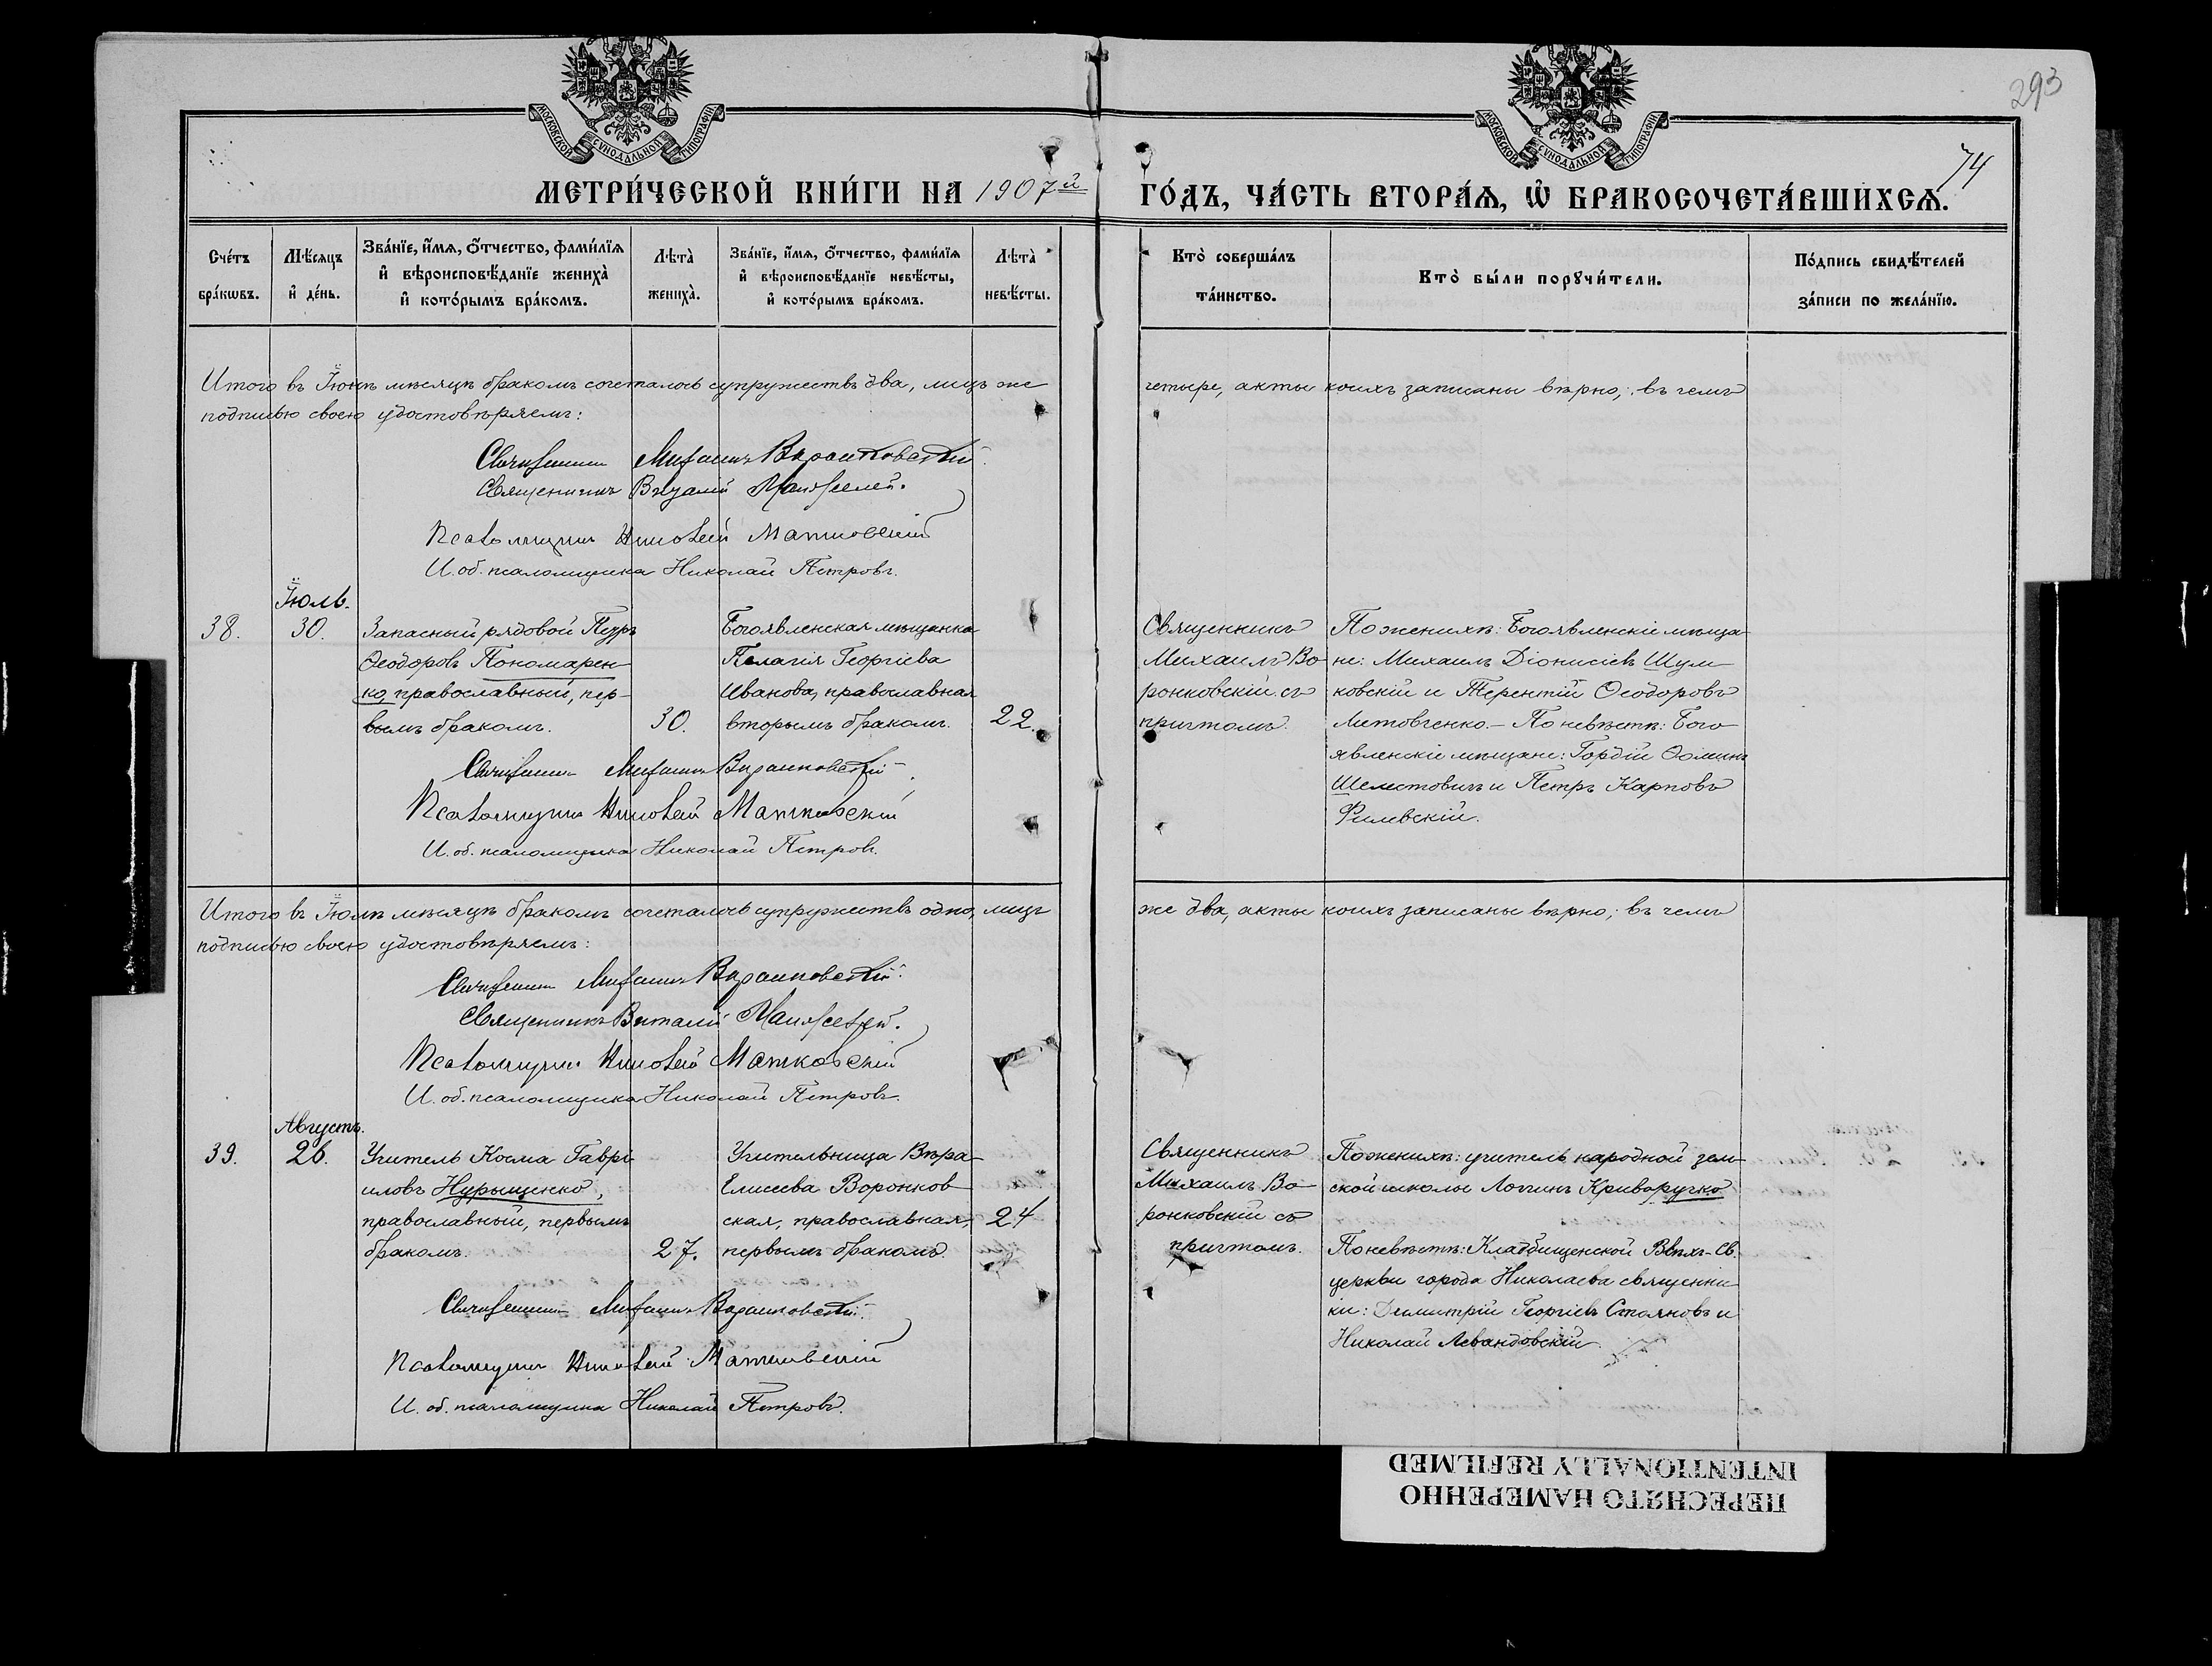 293
74
МОСКОВСКОЙ СУНОДАЛЬНОЙ ТИПОГРАФІИ
МОСКОВСКОЙ СУНОДАЛЬНОЙ ТИПОГРАФІИ
МЕТРИ́ЧЕСКОЙ КНИ́ГИ НА 1907й ГО́ДЪ, ЧА́СТЬ ВТОРА́Ѧ, Ѽ БРАКОСОЧЕТА́ВШИХСѦ.
Сче́тъ бра́кѡвъ.
Мѣ́сяцъ и҆ де́нь.
Зва́нїе, и҆́мѧ, ѻ҆́тчество, фами́лїѧ и҆ вѣроисповѣ́данїе женихà и҆ кото́рымъ бра́комъ.
Лѣ́тà женихà.
Зва́нїе, и҆́мѧ, ѻ҆́тчество, фами́лїѧ и҆ вѣроисповѣ́данїе невѣ́сты, и҆ кото́рымъ бра́комъ.
Лѣ́тà невѣ́сты.
Кто̀ соверша́лъ та́инство.
Кто̀ бы́ли порꙋчи́тели.
По́дпись свидѣ́телей за́писи по жела́нїю.
Итого въ Іюнѣ мѣсяцѣ бракомъ сочеталось супружествъ два, лицъ же четыре, акты коихъ записаны вѣрно; въ чемъ
подписью своею удостовѣряемъ:
Священникъ Михаилъ Воронковскій.
Священникъ Виталій
Псаломщикъ Матковскій
И. об. псаломщика Николай Петровъ.
Іюль.
38.
30.
Запасный рядовой Петръ
Ѳеодоровъ Пономарен-
ко, православный, пер-
вымъ бракомъ.
30.
Богоявленская мѣщанка
Пелагія Георгіева
Иванова, православная
вторымъ бракомъ.
22.
Священникъ
Михаилъ Во-
ронковскій съ
причтомъ.
По женихѣ: Богоявленскіе мѣща-
не: Михаилъ Діонисіевъ Шум-
ковскій и Терентій Ѳеодоровъ
Литовченко. – По невѣстѣ: Бого-
явленскіе мѣщане: Гордій Ѳоминъ
Шелестовичъ и Петръ Карповъ
Филевскій.
Священникъ Михаилъ Воронковскій
Псаломщикъ Матковскій
И. об. псаломщика Николай Петровъ.
Итого въ Іюлѣ мѣсяцѣ бракомъ сочеталось супружествъ одно, лицъ же два, акты коихъ записаны вѣрно; въ чемъ
подписью своею удостовѣряемъ:
Священникъ Михаилъ Воронковскій.
Священникъ Виталій
Псаломщикъ Матковскій
И. об. псаломщика Николай Петровъ.
Августъ.
39.
26.
Учитель Косма Гаврі-
иловъ Нурыщенко,
православный, первымъ
бракомъ.
27.
Учительница Вѣра
Елисеева Воронков-
ская, православная,
первымъ бракомъ.
24
Священникъ
Михаилъ Во-
ронковскій съ
причтомъ.
По женихѣ: учитель народной зем-
ской школы Логгинъ Криворучко
По невѣстѣ: Кладбищенской Всѣхъ-Св.
церкви города Николаева священни-
ки: Димитрій Георгіевъ Стояновъ и
Николай Левандовскій
Священникъ Михаилъ Воронковскій.
Псаломщикъ Матковскій
И. об. псаломщика Николай Петровъ.
ПЕРЕСНЯТО НАМЕРЕННО
INTENTIONALLY REFILMED